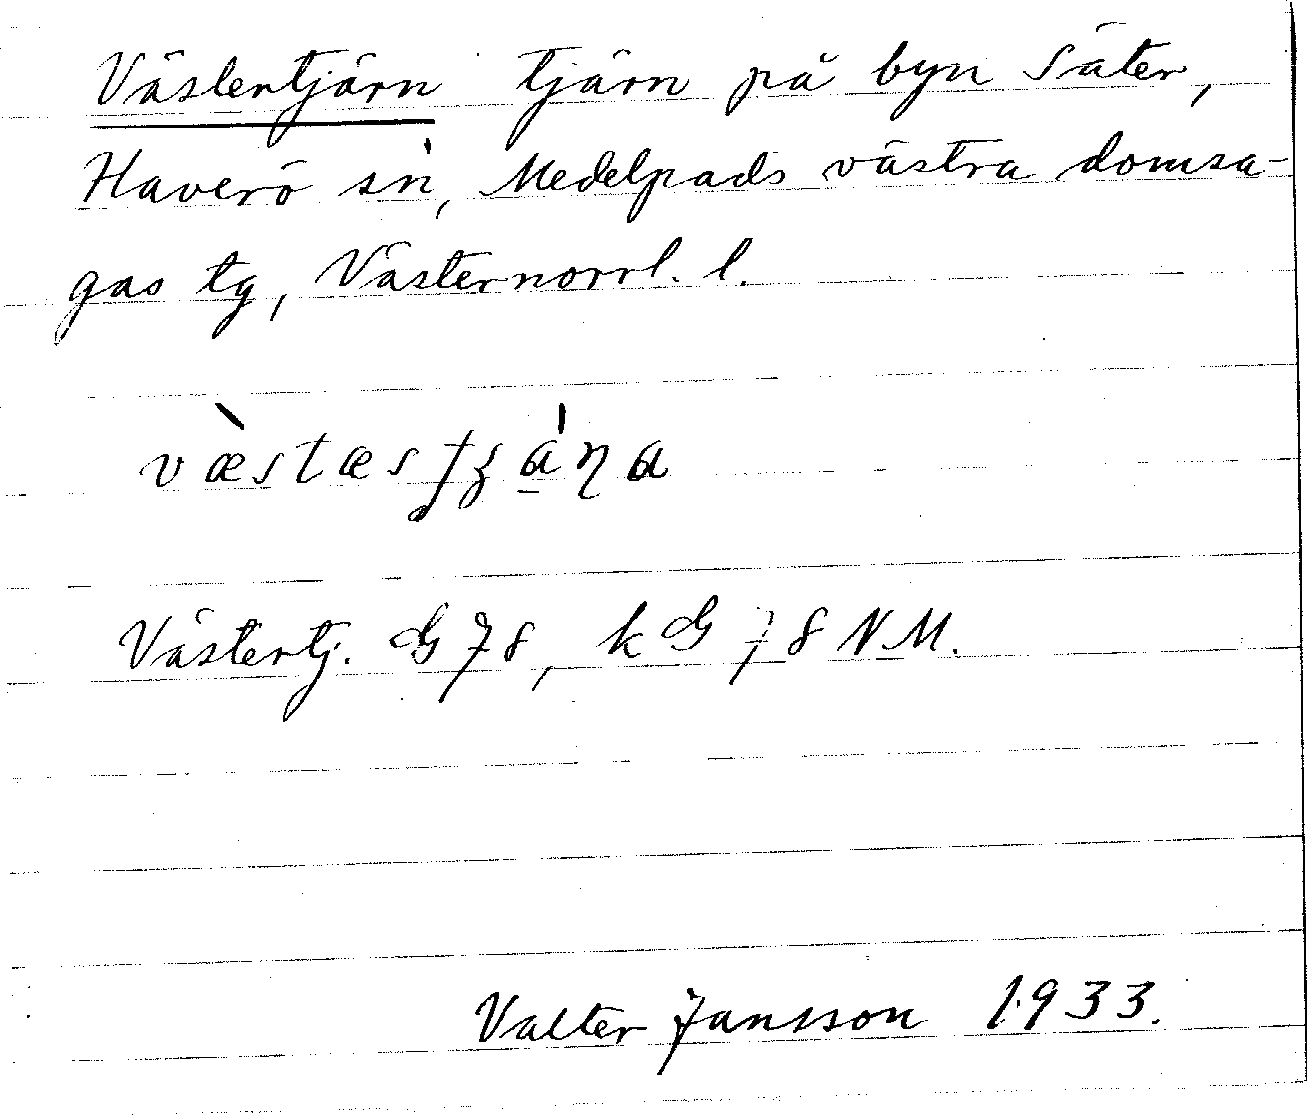 Västertjärn tjärn på byn Säter,
Haverö sn, Medelpads västra domsa-
gas tg, Västernorrl. l.
Västertj. G 78, k G 78 N M.
Valter Jansson 1933.